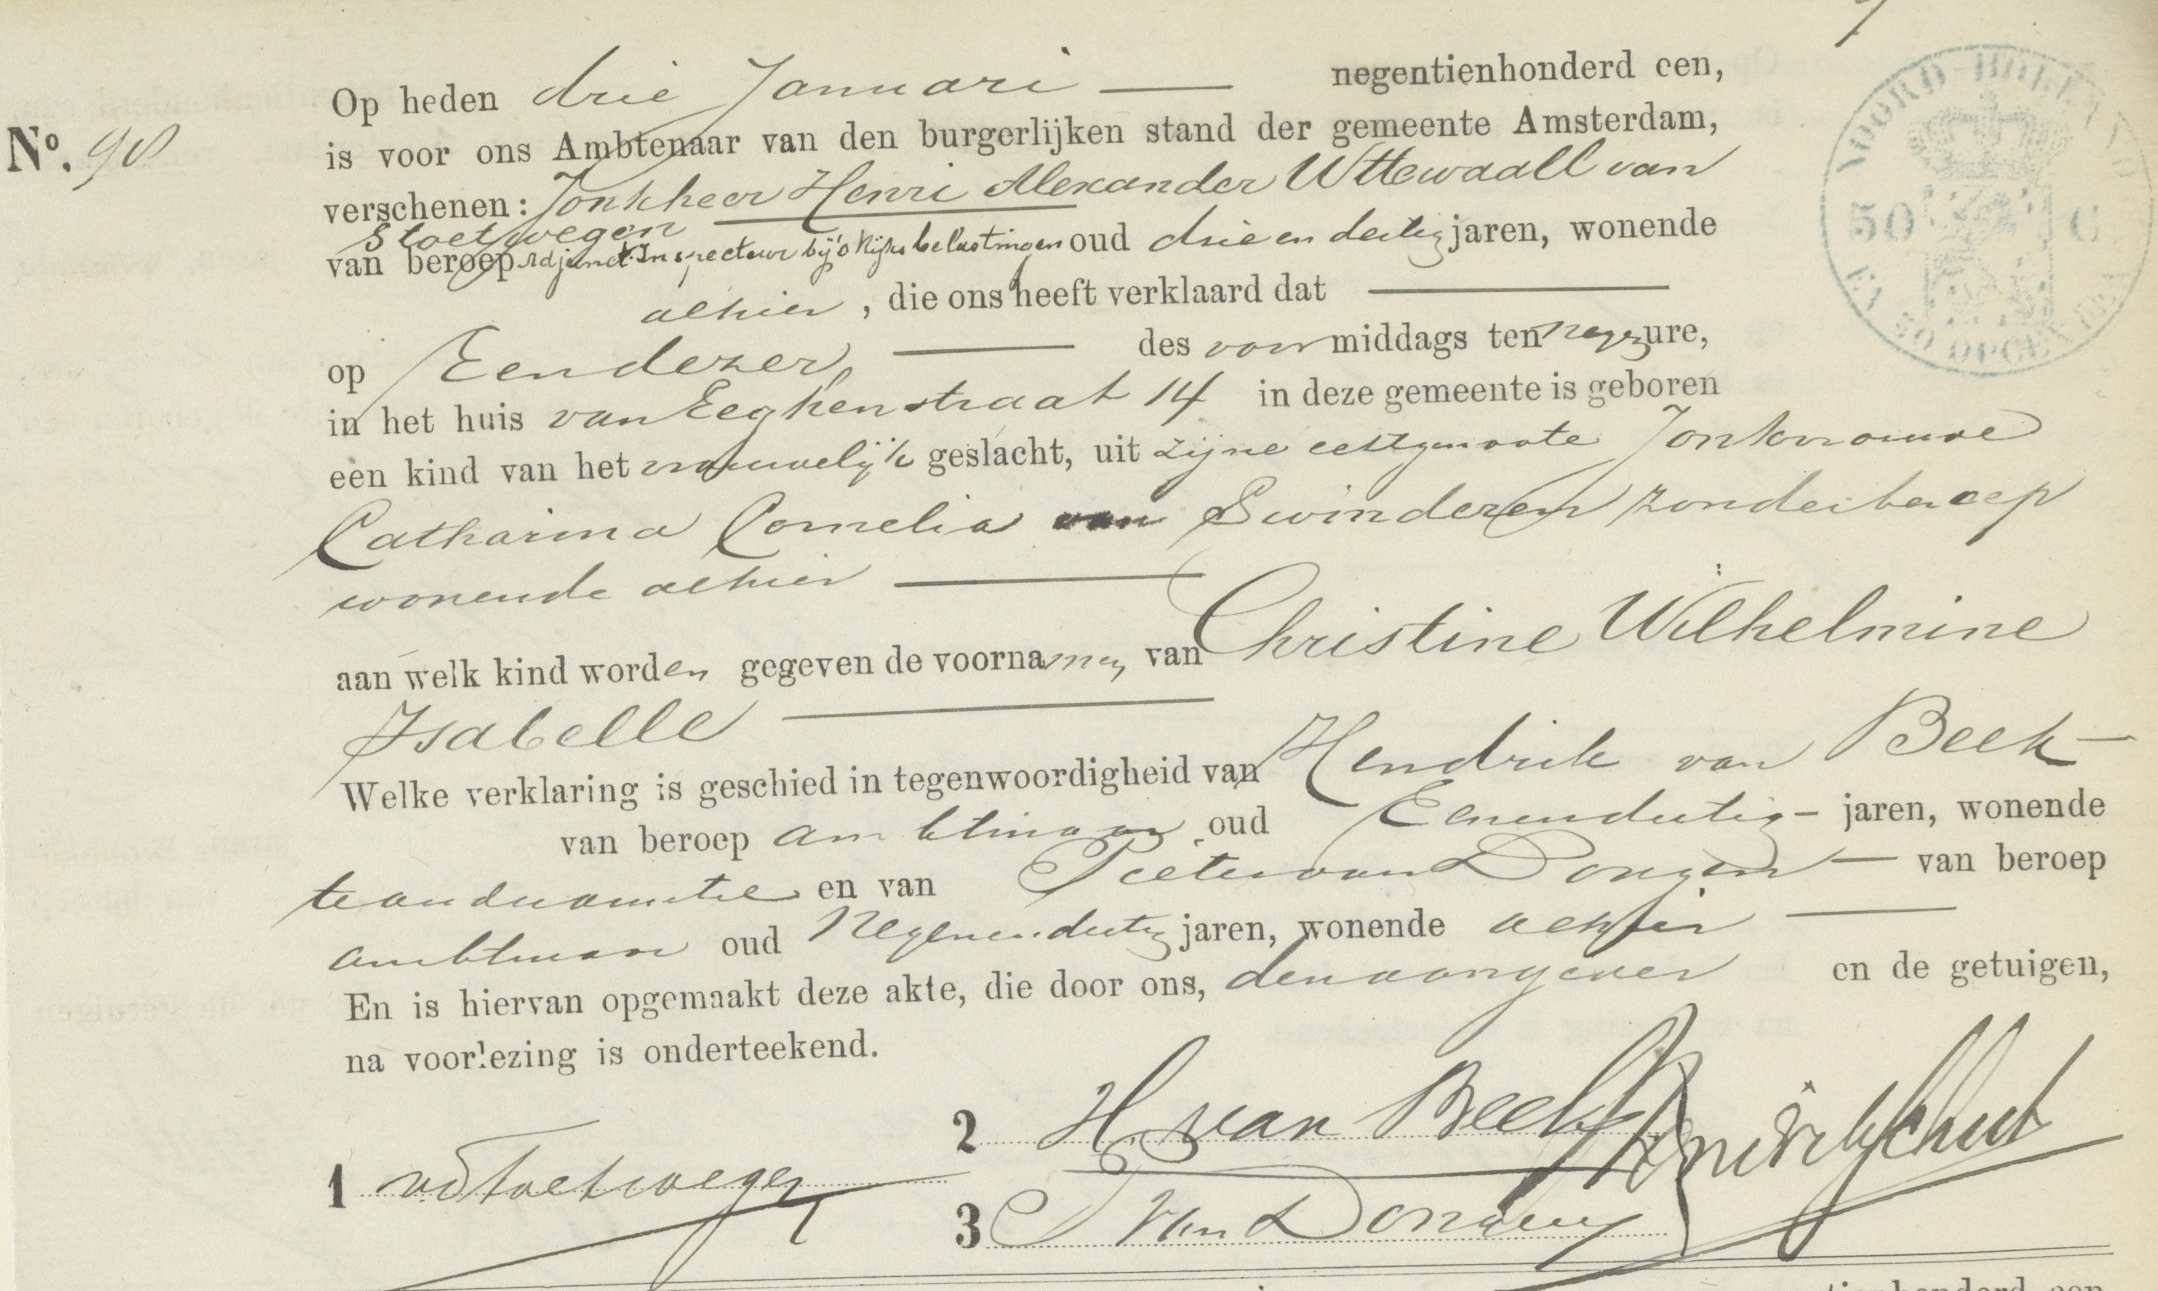 Op heden drie Januari negentienhonderd een,
No. 90
is voor ons Ambtenaar van den burgerlijken stand der gemeente Amsterdam,
verschenen: Jonkheer Henri Alexander Wttewaall van
Stoetwegen
van beroep Adjunct Inspecteur bij 's Rijks belastingen oud drie en dertig jaren, wonende
alhier, die ons heeft verklaard dat
op Een dezer, des voormiddags ten negen ure,
in het huis van Eeghenstraat 14 in deze gemeente is geboren
een kind van het vrouwelijk geslacht, uit zijne echtgenoote Jonkvrouwe
Catharina Cornelia van Swinderen zonder beroep
wonende alhier
aan welk kind worden gegeven de voornamen van Christine Wilhelmine
Isabelle
Welke verklaring is geschied in tegenwoordigheid van Hendrik van Beek
van beroep ambtenaar oud Eenendertig jaren, wonende
te ouderamstel en van Pieter van Dongen van beroep
ambtenaar oud Negenendertig jaren, wonende alhier
En is hiervan opgemaakt deze akte, die door ons, den aangever en de getuigen,
na voorlezing is onderteekend.
1 vStoetwegen
2 H van Beek
3 P van Dongen
NOORD-HOLLAND
50 C
EN 50 OPCENTEN